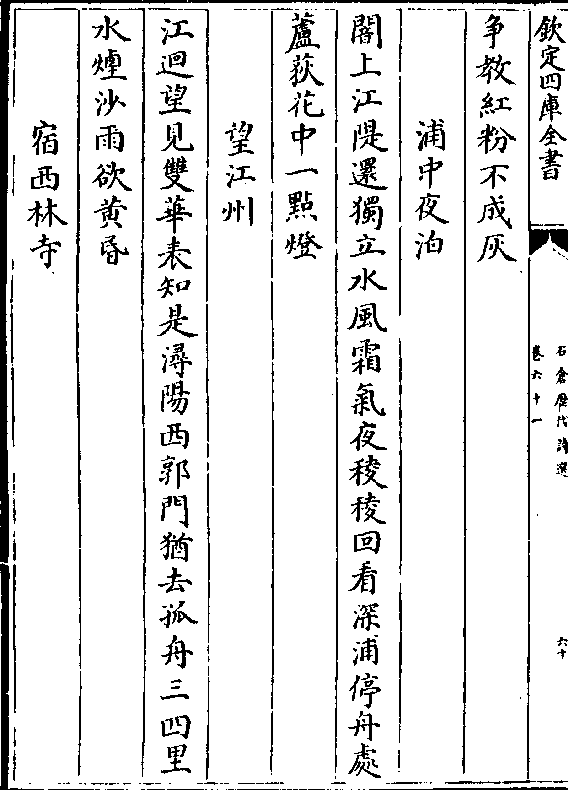 欽定四庫全書
石倉歷代詩選
卷六十一
六十
爭教紅粉不成灰
浦中夜泊
闇上江隄還獨立水風霜氣夜稜稜回看深浦停舟處
蘆荻花中一點燈
望江州
江迴望見雙華表知是潯陽西郭門猶去孤舟三四里
水煙沙雨欲黃昏
宿西林寺